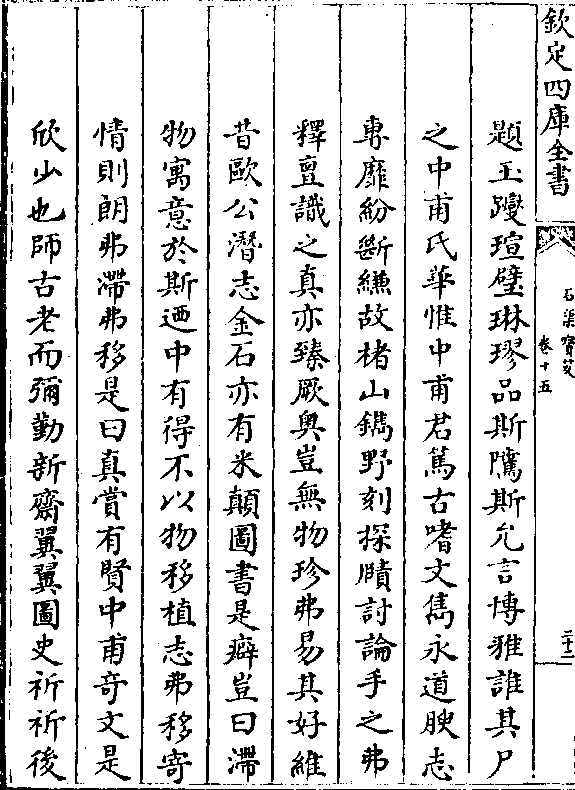 欽定四庫全書
石渠寶笈
卷十五
題玉躞瑄璧琳璆品斯隲斯允言博雅誰其尸
之中甫氏華惟中甫君篤古嗜文雋永道腴志
專靡紛斷縑故楮山鐫野刻探賾討論手之弗
釋亶識之真亦臻厥奥豈無物珍弗易其好維
昔歐公潛志金石亦有米顛圖書是癖豈曰滯
物寓意於斯迺中有得不以物移植志弗移寄
情則朗弗滯弗移是曰真賞有賢中甫奇文是
欣少也師古老而彌勤新齋翼翼圖史祈祈後